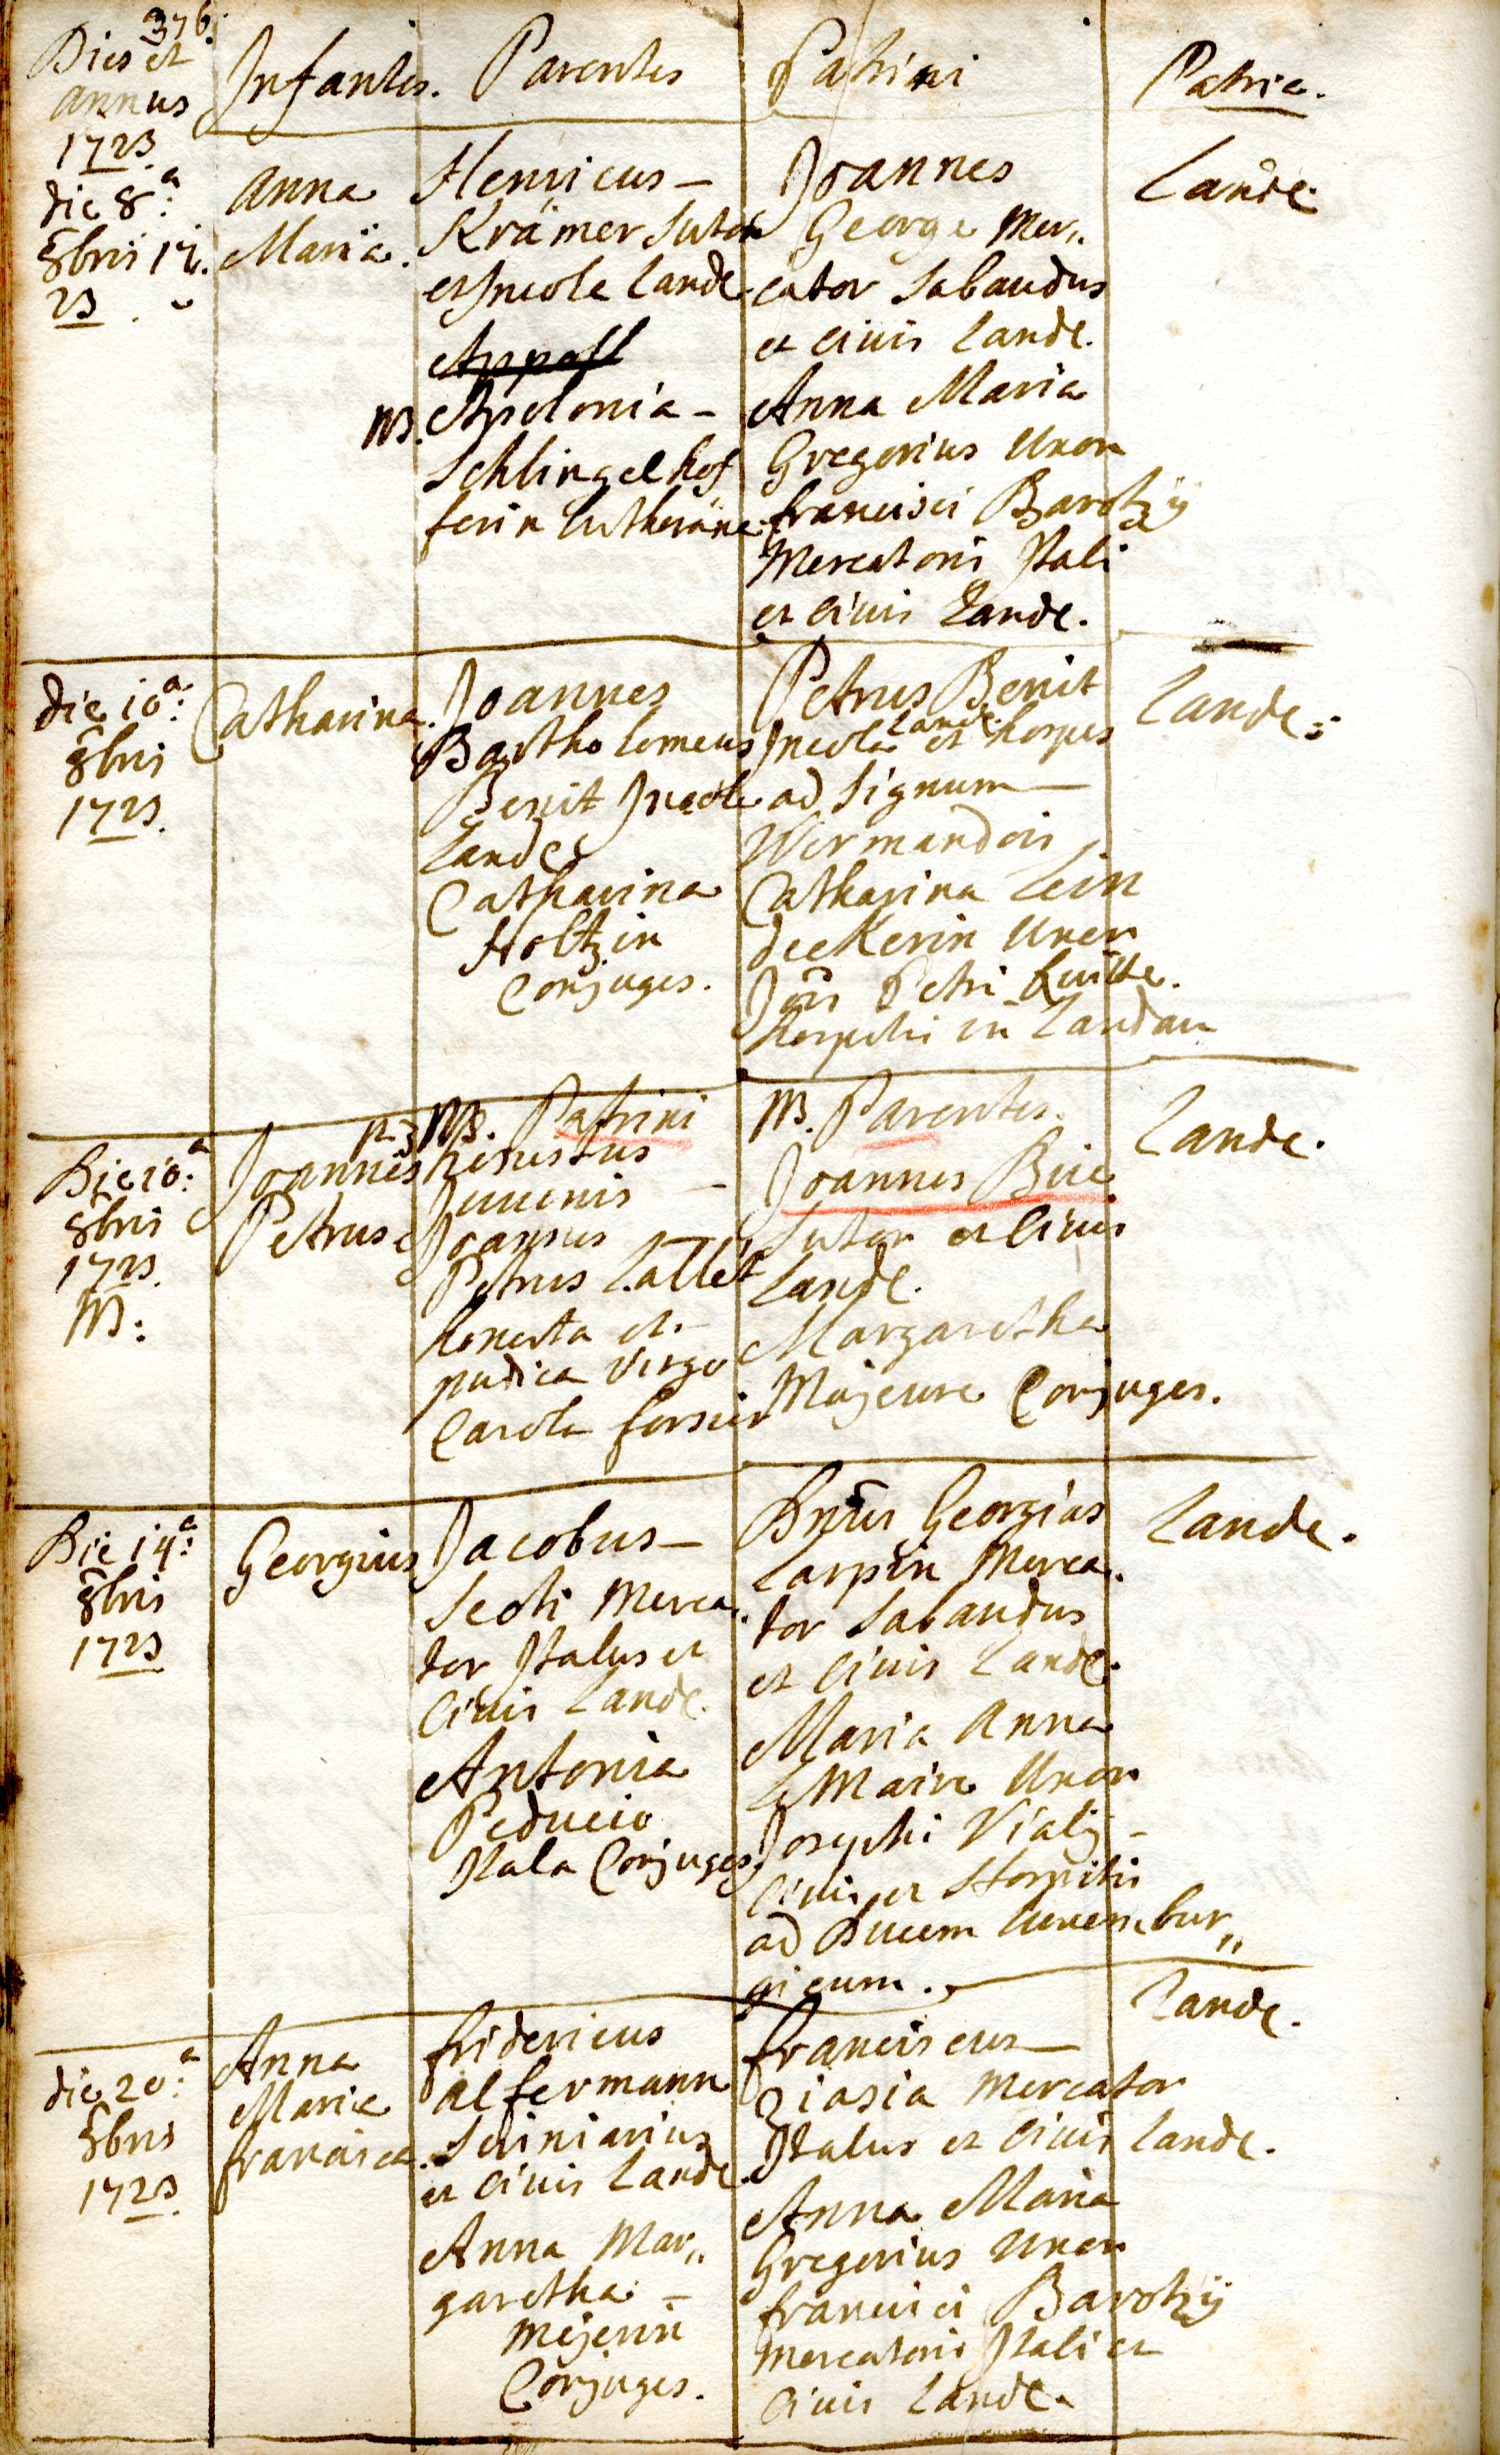 376.
Dies et
annus
1723.
Infantes.
Parentes
Patrini
Patria.
die 8.a
8bris 17.
23
Anna
Maria.
Henricus –
Krämer Sutor
et Incola Lande.
Appoll
NB. Apolonia –
Schlingelhof
ferin lutherana.
Joannes
George Mer,,
cator Sabaudus
et Civis Lande.
Anna Maria
Gregorius Uxor
francisci Barotzij
Mercatoris Itali
et Civis Lande.
Lande.
die 10.a
8bris
1723.
Catharina.
Joannes
Bartholomeus
Benit Incola
Lande
Catharina
Holtzin
Conjuges.
Petrus Benit
Incola Lande. et hospes
ad Signum –
Vermandois
Catharina Lein
deckerin Uxor
Jois Petri
hospitis in Landau
Lande.
Die 10.a
8bris
1723.
NB:
Joannes
Petrus
NB. Patrini
honestus
Juvenis –
Joannes
Petrus Lallet
honesta et –
pudica Virgo
Carola forsier
NB. Parentes.
Joannes Bire
Sutor et Civis
Lande.
Margaretha
Majeure Conjuges.
Lande.
Die 14.a
8bris
1723
Georgius
Jacobus –
Scoti Merca,,
tor Italus et
Civis Lande.
Antonia
Peducio
Itala Conjuges.
Dnus Georgius
Larpin Merca,,
tor Sabaudus
et Civis Lande.
Maria Anna
Le Maire Uxor
Josephi Vialij –
Civis et Hospitis
ad Ducem Luxembur,,
gicum.
Lande.
die 20.a
8bris
1723.
Anna
Maria
francisca.
fridericus
Alfermann
Scriniarius
et Civis Lande.
Anna Mar,,
garetha –
Mejerin
Conjuges.
franciscus –
Ziasia Mercator
Italus et Civis Lande.
Anna Maria
Gregorius Uxor
francisci Barotzij
Mercatoris Itali et
Civis Lande.
Lande.